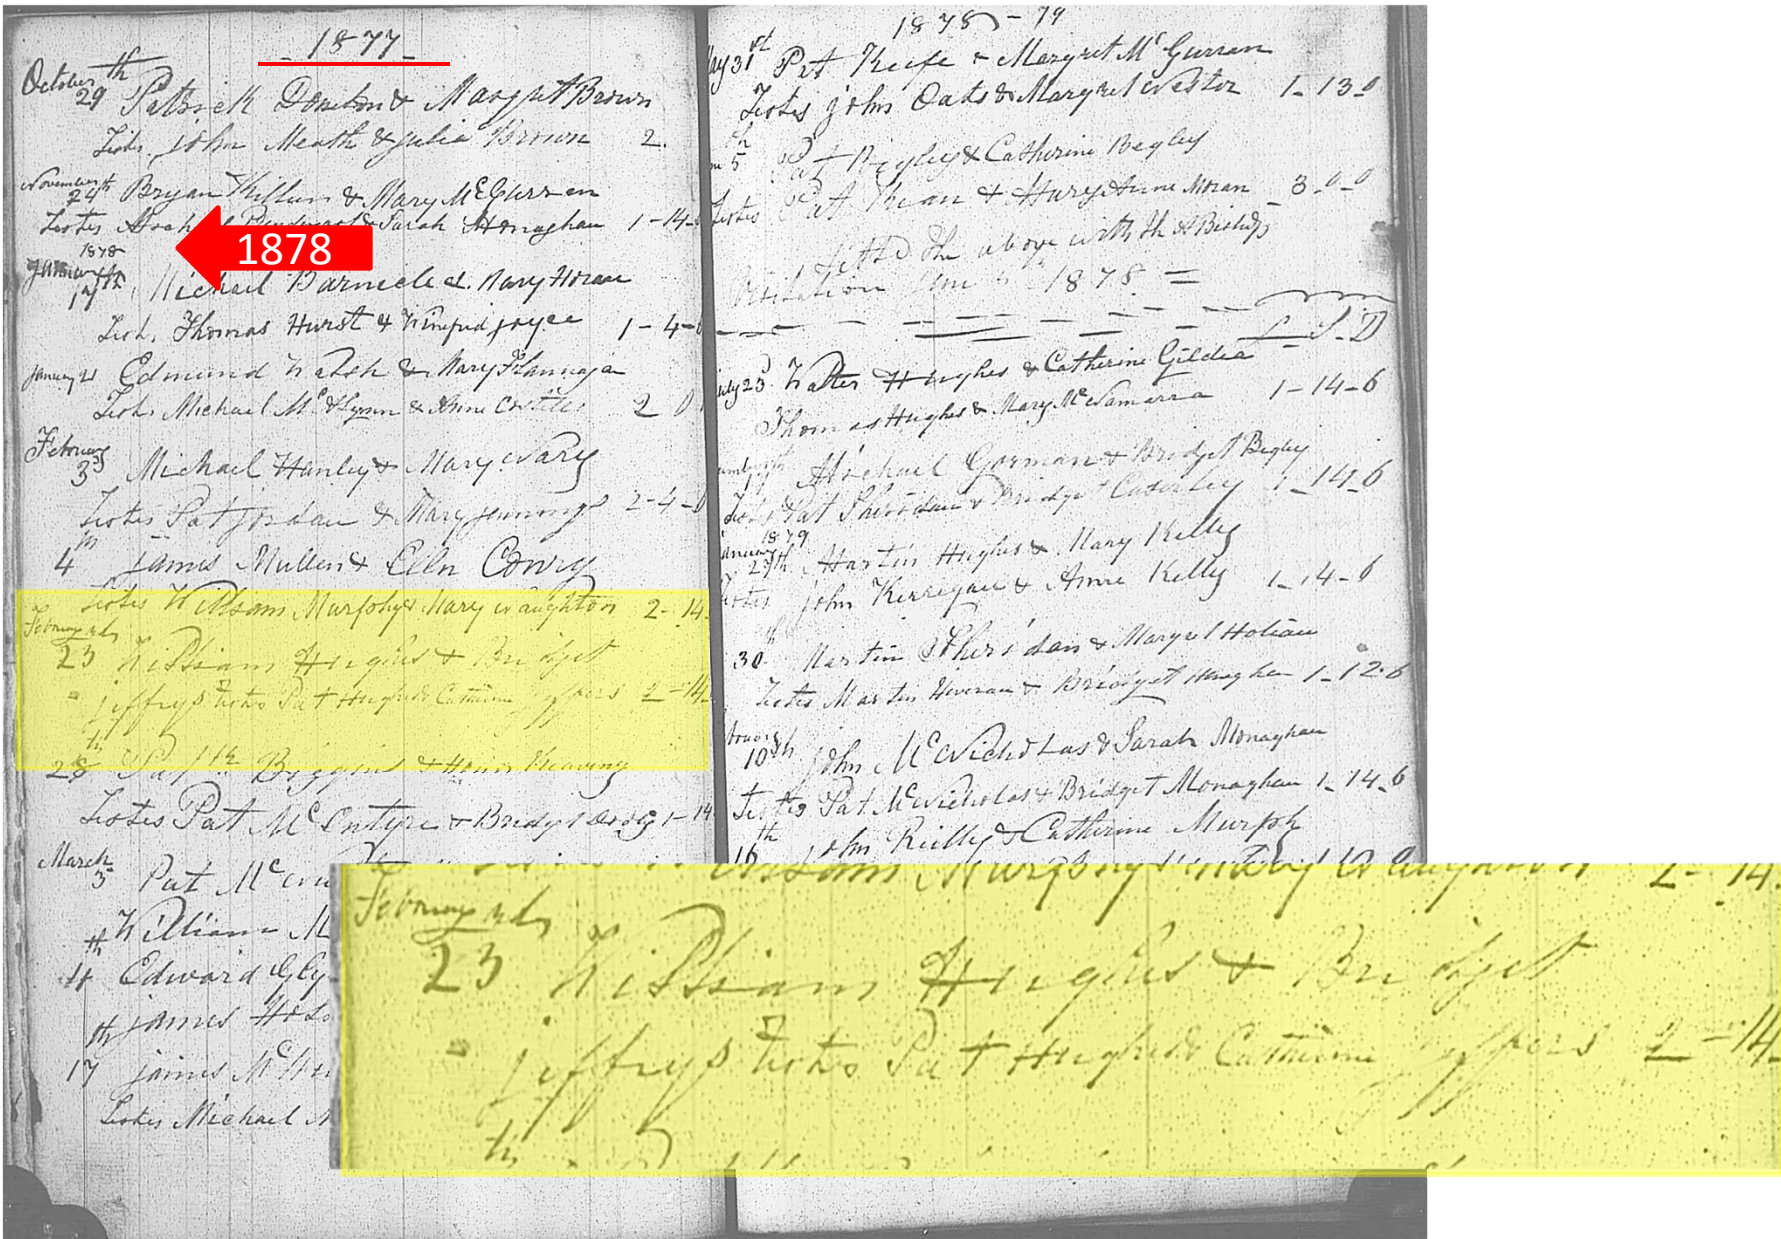 1877
October 29th Patrick & Margret Brown
Testes John Meath & Julia Brown 2.
November 24th Bryan & Mary McGurren
Testes & Sarah Monaghan 1-14-
1878
1878
January 17th Michael Barnicle & Mary Horan
Test. Thomas Hurst & Winefrid Joyce 1-4-0
January 21 Edmund Walsh & Mary Flannaga
Test. Michael McGlynn & Anne Costelle 2 0
February 3 Michael Hanley & Mary Vary
Testes Pat Jordan & Mary Jennings 2-4-0
4th James Mullen & Elln Conry
Testes William Murphy & Mary Naughton 2-14.
February
23 William Hughes & Bridget
Jeffrys Testes Pat Hughes & Catherine Jeffers 2-14
th
28 Patk Biggins & Honor Keaveny
Testes Pat McEntyre & Bridget 1-14
March 3 Pat Mc
William M
th
4 Edward Gly
James
th
17 James Mc
Testes Michael
1878-79
May 31st Pat Keefe & Margret McGurran
Testes John Oats & Margret Nestor 1-13-0
th
5 Pat Begley & Catherine Begley
Testes Pat Kean & Mary Anne Moran 3-0-0
the above with the Bishop
Visitation 1878
L-S-D
July 23 Walter Hughes & Catherine Gildea
Thomas Hughes & Mary McNamarra 1-14-6
Michael Gorman & Bridget Begley
Testes Pat Sheridan & Bridget 1-14-6
1879
January 27th Martin Hughes & Mary Kelly
Testes John Kerrigan & Anne Kelly 1-14-6
th
30 Martin Sheridan & Margret
Testes Martin & Bridget Hughes 1-12-6
10th John McNicholas & Sarah Monaghan
Testes Pat McNicholas & Bridget Monaghan 1-14-6
th
16 John Reilly & Catherine Murph
William Murphy & Mary Naughton 2-14.
February
23 William Hughes & Bridget
Jeffrys Testes Pat Hughes & Catherine Jeffers 2-14
th